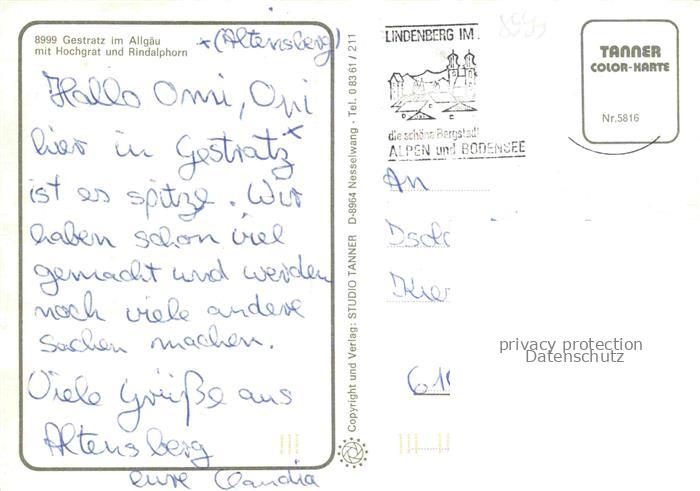 8999 Gestratz im Allgäu
mit Hochgrat und Rindalphorn
*(Altensberg)
Hallo Omi, Opi
hier in Gestratz*
ist es spitze. Wir
haben schon viel
gemacht und werden
noch viele andere
Sachen machen.
Viele Grüße aus
Altensberg
eure Claudia
Copyright und Verlag: STUDIO TANNER D-8964 Nesselwang - Tel. 0 83 61 / 211
8999
LINDENBERG IM
die schöne Bergstadt
ALPEN und BODENSEE
TANNER
COLOR-KARTE
Nr.5816
An
privacy protection
Datenschutz